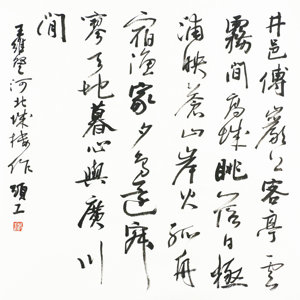 井邑傅巖上客亭雲
霧間高城眺落日極
浦映蒼山岸火孤舟
宿漁家夕鳥還寂
寥天地暮心與廣川
閒
王維登河北城樓作